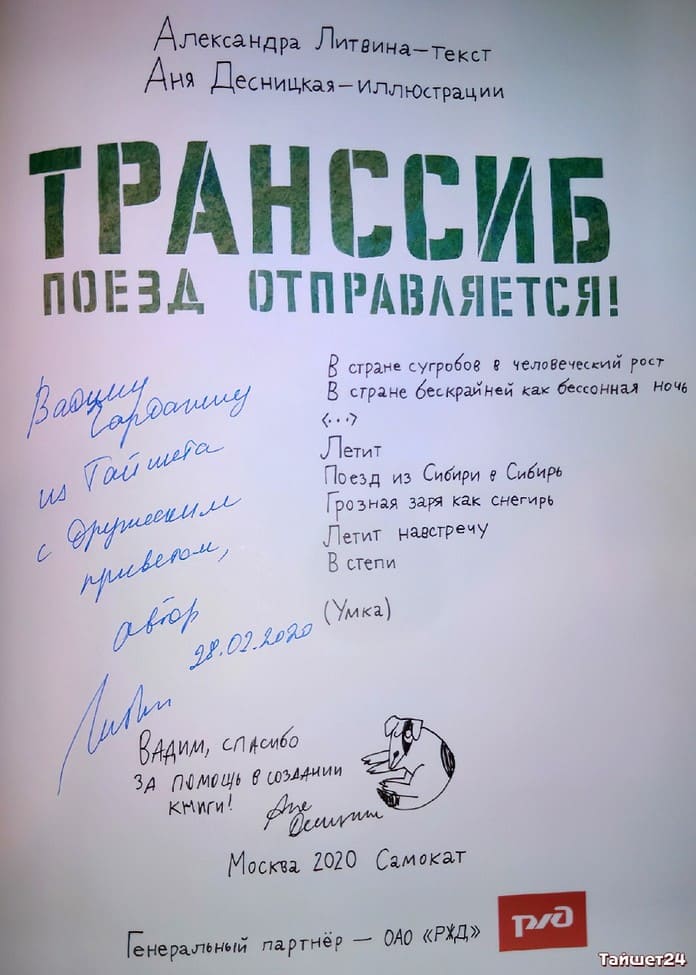 Александра Литвина—текст
Аня Десницкая—иллюстрации
ТРАНССИБ
ПОЕЗД ОТПРАВЛЯЕТСЯ!
В стране сугробов в человеческий рост
В стране бескрайней как бессонная ночь
<...>
Летит
Поезд из Сибири в Сибирь
Грозная заря как снегирь
Летит навстречу
В степи
(Умка)
Вадиму
из Тайшета
с дружеским
приветом,
автор
28.02.2020
Вадим, спасибо
за помощь в создании
книги!
Москва 2020 Самокат
Генеральный партнёр — ОАО «РЖД»
РЖД
Тайшет24